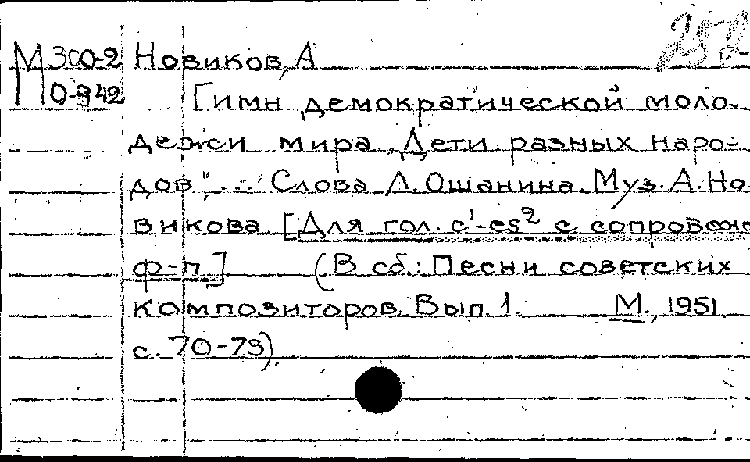 252
М 300-2 Новиков, А
0-942 Гимн демократической моло-
дежи мира „Дети разных наро-
дов"... Слова Л. Ошанина. Муз. А. Но
викова [Для гол. c¹-es² с сопровож
ф-п.] (В сб.: Песни советских
композиторов. Вып. 1. М., 1951
с. 70-73)